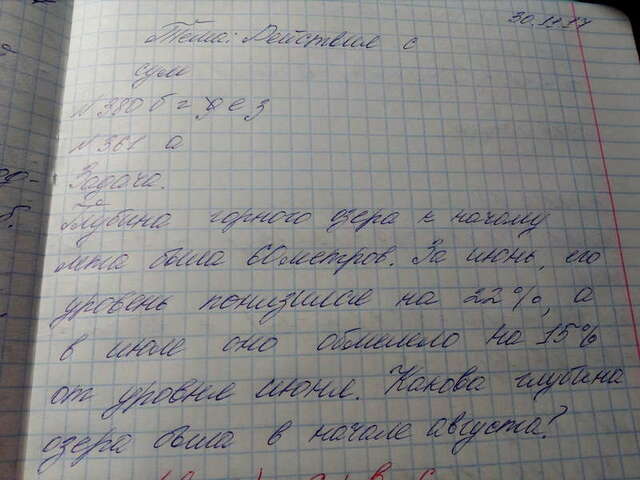 30.11.17
Тема: Действия с
сум
N 380 б г д е з
N 361 а
Задача.
Глубина горного озера к началу
лета была 60 метров. За июнь, его
уровень понизился на 22%, а
в июле оно обмелело на 15%
от уровня июня. Какова глубина
озера была в начале августа?